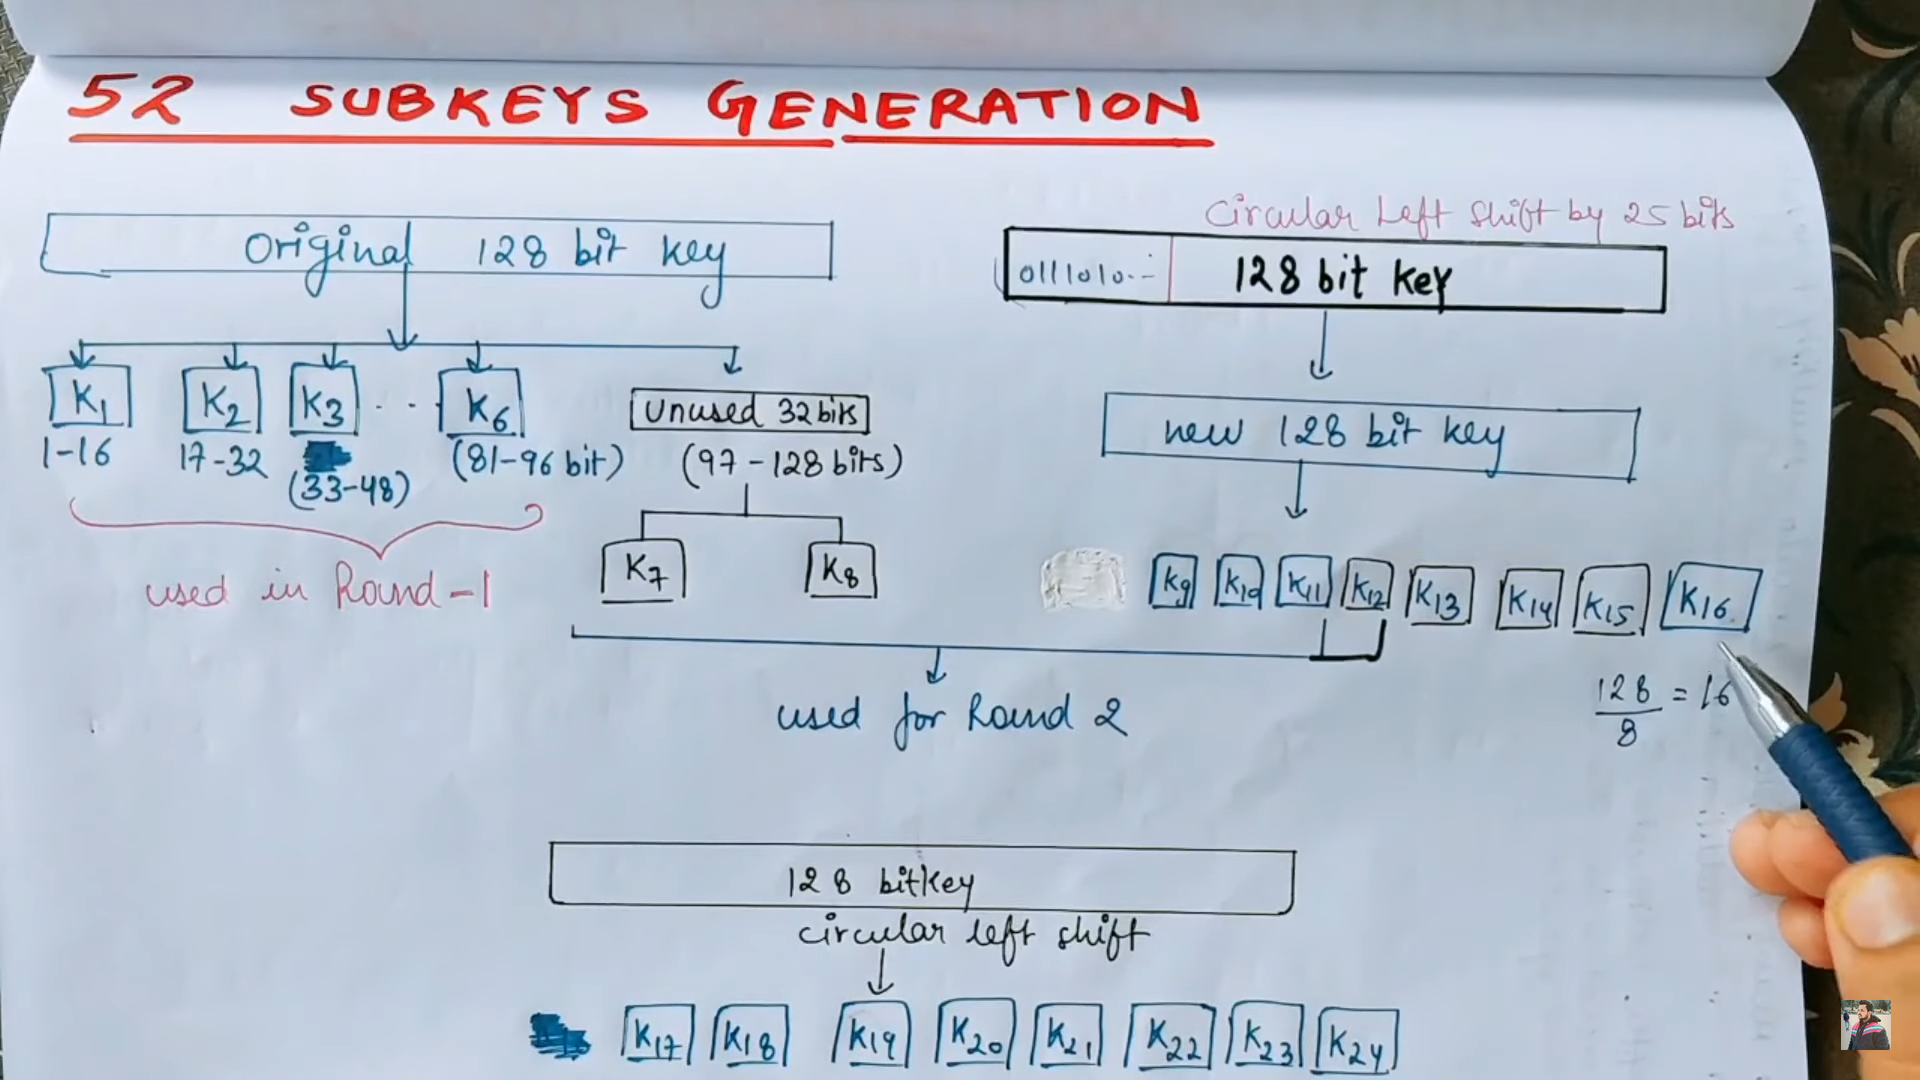 52 SUBKEYS GENERATION
Original 128 bit key
K1 K2 K3 . . . K6
1-16 17-32 (33-48) (81-96 bit)
used in Round-1
Unused 32 bits
(97-128 bits)
K7 K8
Circular Left Shift by 25 bits
0111010..- 128 bit key
new 128 bit key
K9 K10 K11 K12 K13 K14 K15 K16
used for Round 2
128/8 = 16
128 bitkey
circular left shift
K17 K18 K19 K20 K21 K22 K23 K24